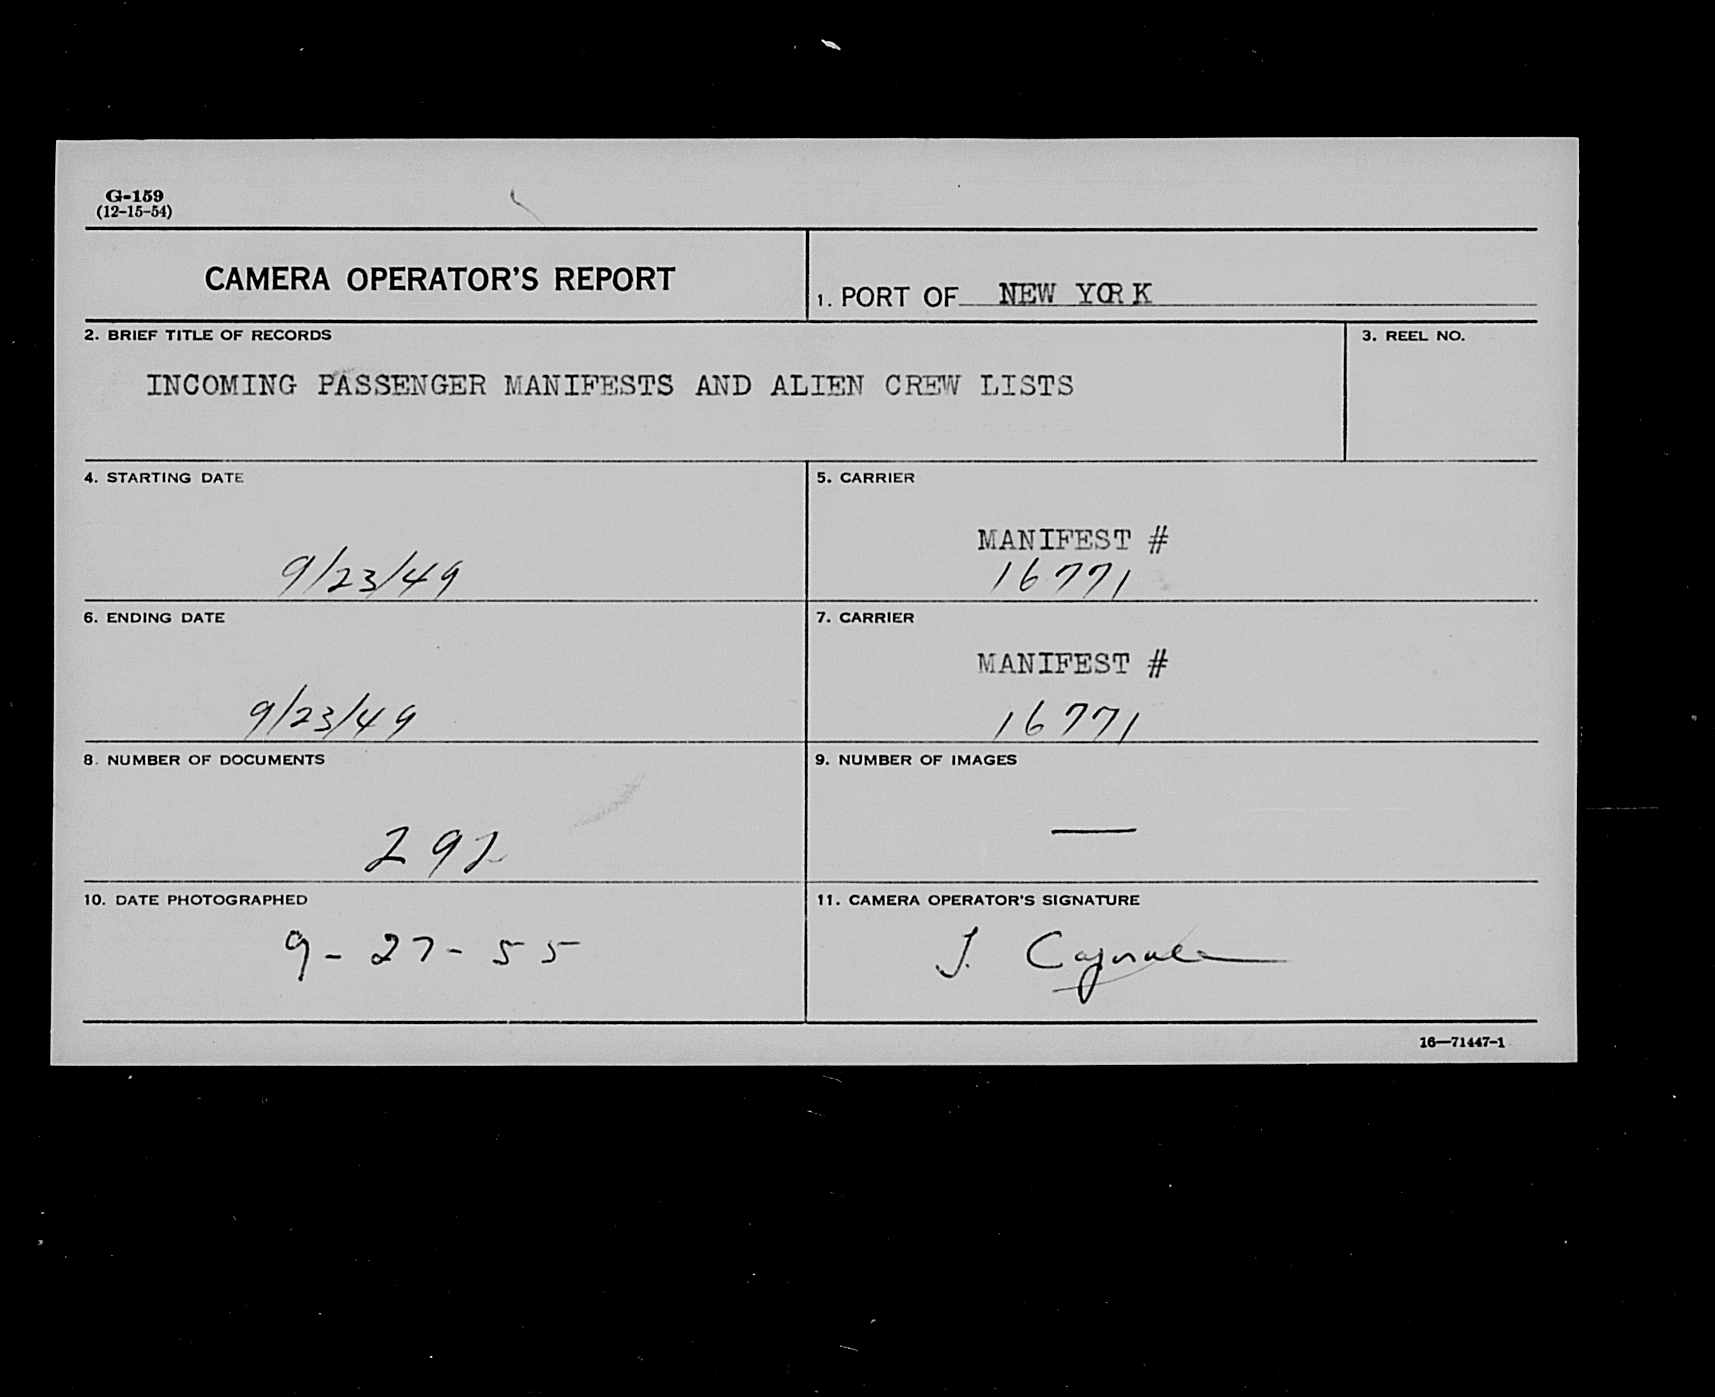 G-159
(12-15-54)
CAMERA OPERATOR'S REPORT
1. PORT OF NEW YORK
2. BRIEF TITLE OF RECORDS
3. REEL NO.
INCOMING PASSENGER MANIFESTS AND ALIEN CREW LISTS
4. STARTING DATE
9/23/49
5. CARRIER
MANIFEST #
16771
6. ENDING DATE
9/23/49
7. CARRIER
MANIFEST #
16771
8. NUMBER OF DOCUMENTS
292
9. NUMBER OF IMAGES
—
10. DATE PHOTOGRAPHED
9-27-55
11. CAMERA OPERATOR'S SIGNATURE
J.
16—71447-1